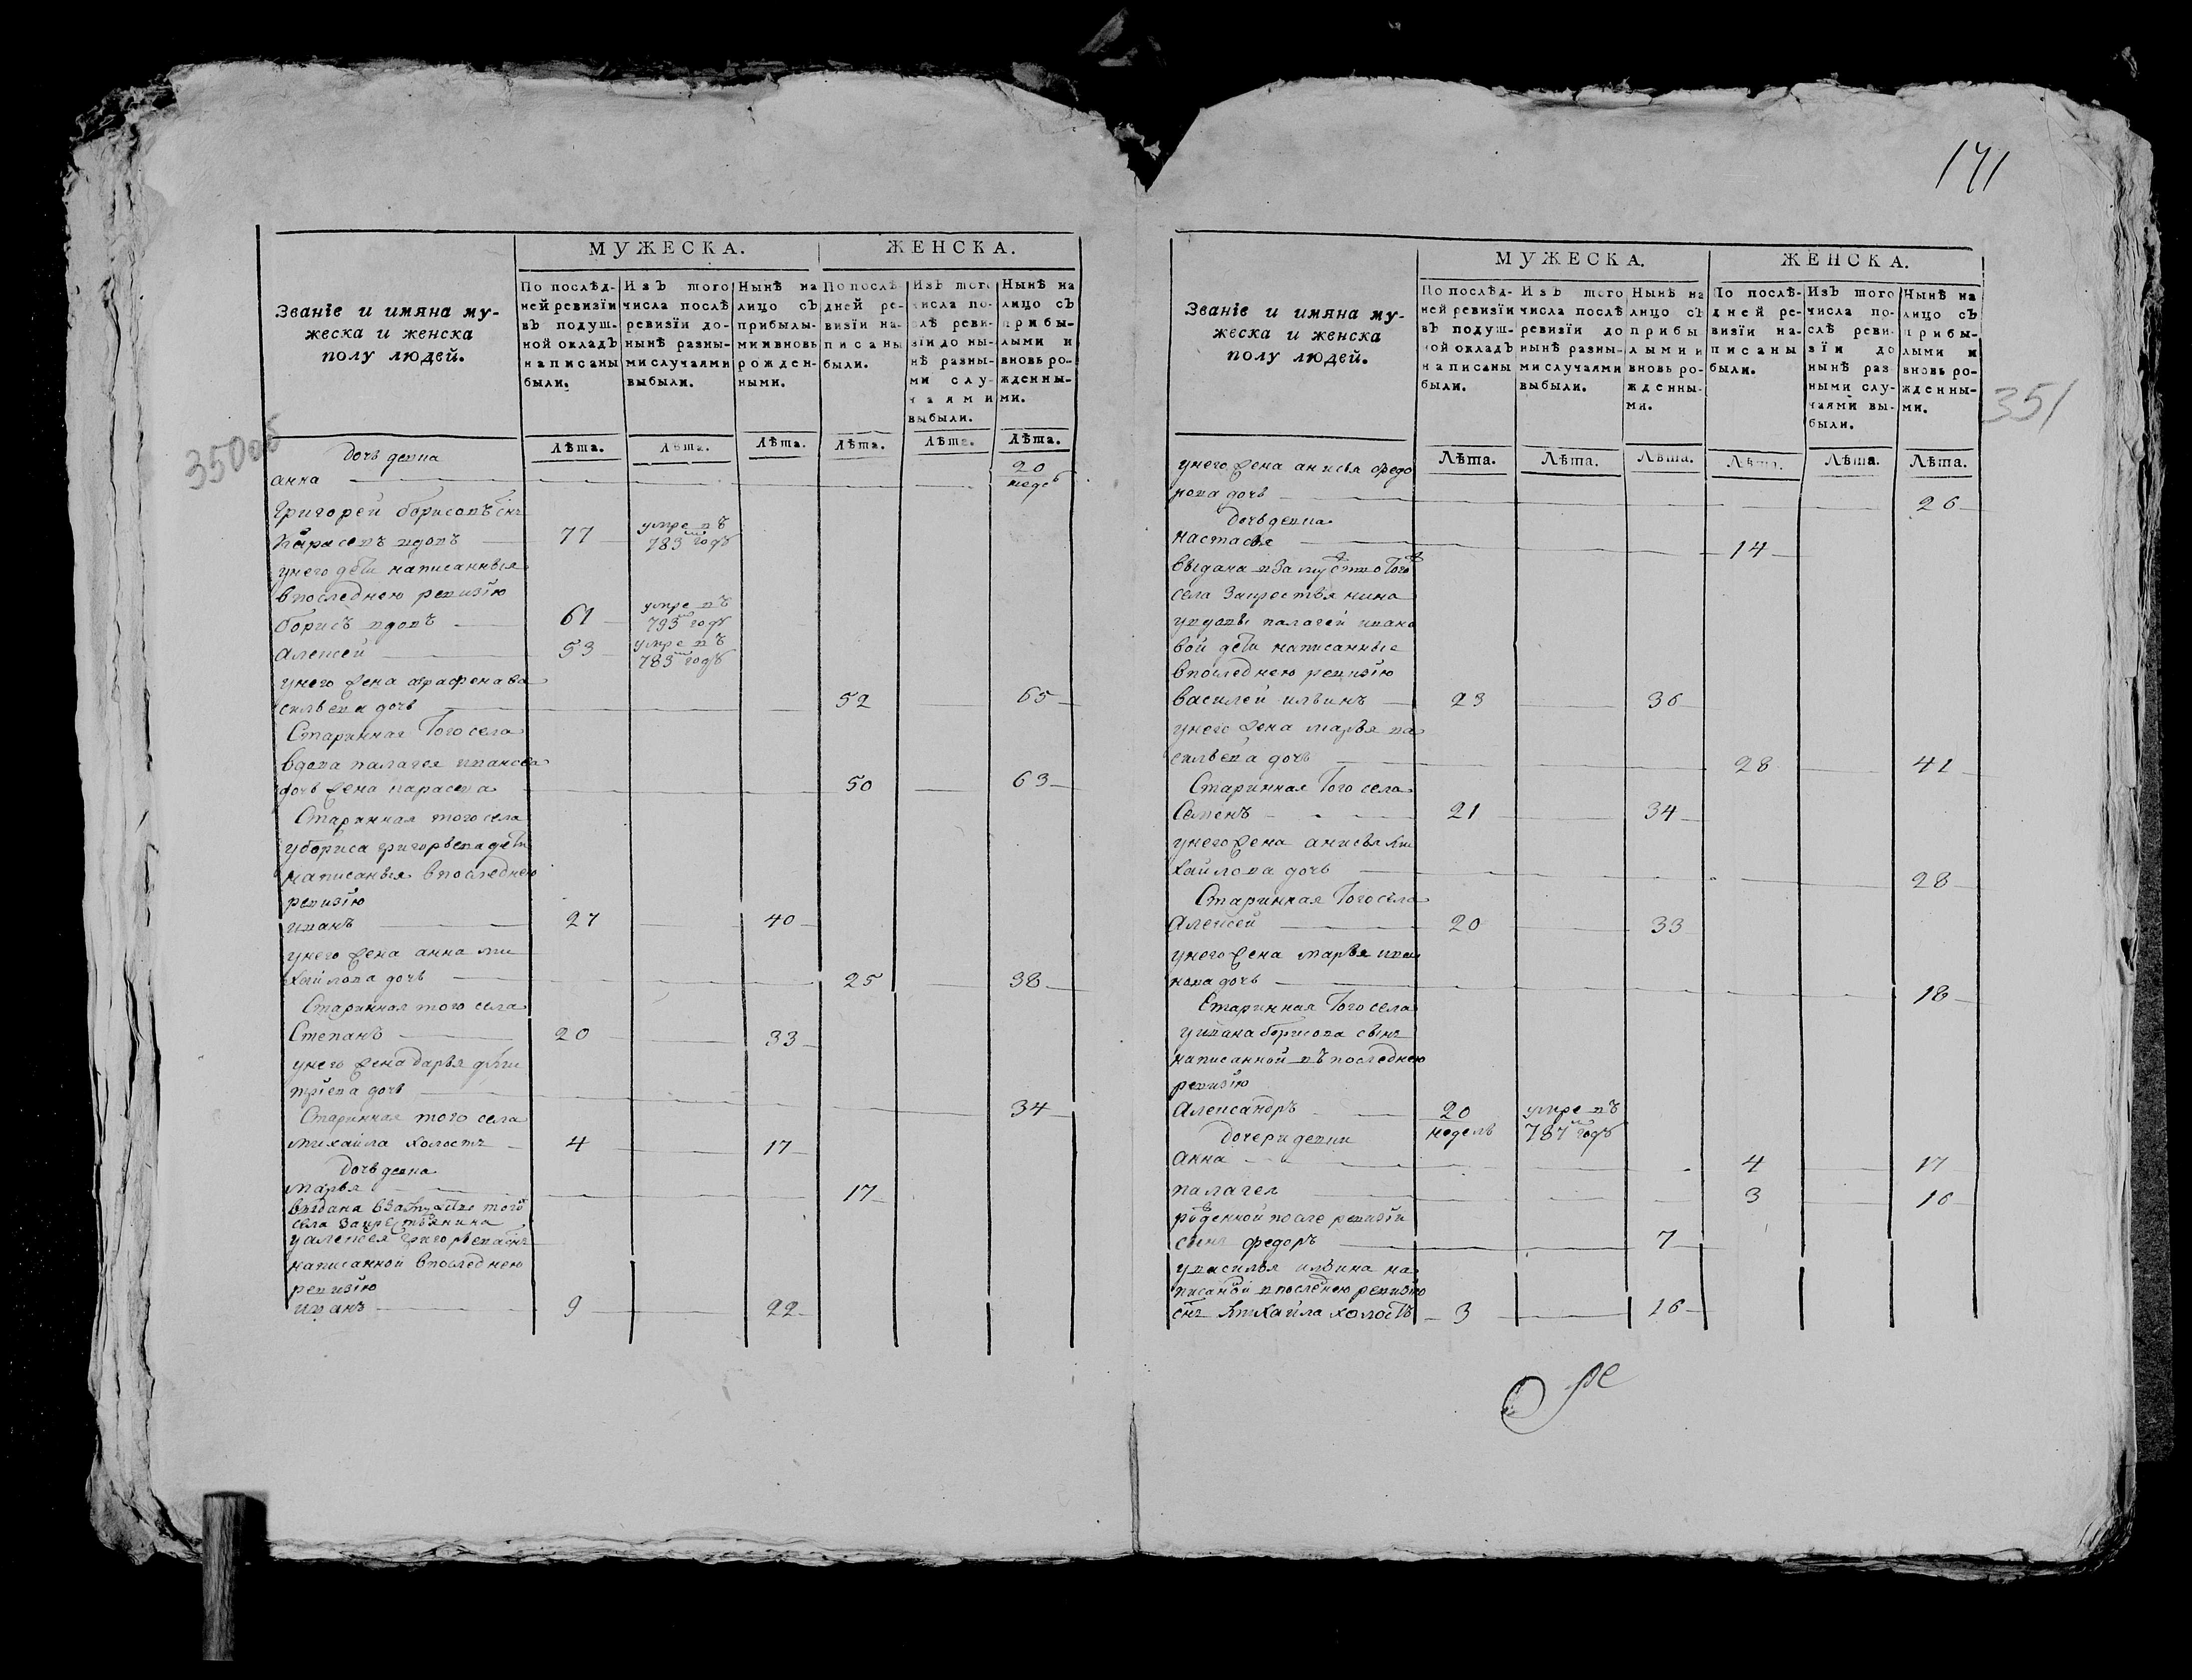 171
350об
351
МУЖЕСКА.
ЖЕНСКА.
Званіе и имяна му-
жеска и женска
полу людей.
По послѣд-
ней ревизїи
въ подуш-
ной окладъ
написаны
были.
Изъ того
числа послѣ
ревизїи до-
нынѣ разны-
ми случаями
выбыли.
Нынѣ на
лицо съ
прибылы-
ми и вновь
рожден-
ными.
По послѣ-
дней ре-
визїи на-
писаны
были.
Изъ того
числа по-
слѣ реви-
зїи до ны-
нѣ разны-
ми слу-
чаями
выбыли.
Нынѣ на
лицо съ
прибы-
лыми и
вновь ро-
жденны-
ми.
Лѣта. Лѣта. Лѣта. Лѣта. Лѣта. Лѣта.
дочь девка
анна 20 неде
Григорей борисовъ снъ
карасевъ вдовъ 77 умре въ 783 годъ
унего дети написанныя
впоследнею ревизїю
борисъ вдовъ 61 умре въ 793 годъ
алексей 53 умре въ 783 годъ
унего жена аграфена ва
сильева дочь 52 65
Старинная того села
вдова палагея иванова
дочь жена карасева 50 63
Старинная того села
убориса григорьева дети
написаныя впоследнею
ревизїю
иванъ 27 40
унего жена анна ми
хайлова дочь 25 38
Старинная того села
Степанъ 20 33
унего жена дарья дми
трїева дочь 34
Старинная того села
михайла холостъ 4 17
дочь девка
марья 17
выдана взамужство того
села закрестьянина
уалексея григорьева снъ
написанной впоследнею
ревизїю
иванъ 9 22
МУЖЕСКА.
ЖЕНСКА.
Званіе и имяна му-
жеска и женска
полу людей.
По послѣд-
ней ревизїи
въ подуш-
ной окладъ
написаны
были.
Изъ того
числа послѣ
ревизїи до
нынѣ разны-
ми случаями
выбыли.
Нынѣ на
лицо съ
прибы
лыми и
вновь ро-
жденны-
ми.
По послѣ-
дней ре-
визїи на-
писаны
были.
Изъ того
числа по-
слѣ реви-
зїи до
нынѣ раз
ными слу-
чаями вы-
были.
Нынѣ на
лицо съ
прибы-
лыми и
вновь ро-
жденны-
ми.
Лѣта. Лѣта. Лѣта. Лѣта. Лѣта. Лѣта.
унего жена анисья федо
рова дочь 26
дочь девка
настасья 14
выдана взамуство того
села закрестьянина
увдовы палагеи ивано
вой дети написанные
впоследнею ревизїю
василей ильинъ 23 36
унего жена марья ва
сильева дочь 28 41
Старинная того села
Семенъ 21 34
унего жена анисья ми
хайлова дочь 28
Старинная того села
Алексей 20 33
унего жена марья ива
нова дочь 18
Старинная того села
уивана борисова сынъ
написанной въ последнею
ревизїю
александръ 20 недель умре въ 787 годъ
дочери девки
анна 4 17
палагея 3 16
рожденной после ревизїи
сынъ федоръ 7
увасилья ильина на
писаной впоследнею ревизїю
снъ михайла холостъ 3 16